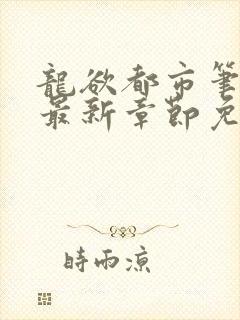 龍欲都市筆
最新章節免
時雨涼